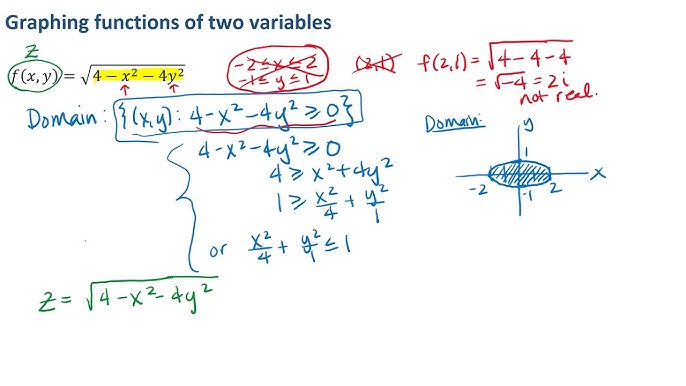 Graphing functions of two variables
z
f(x, y) = √(4 − x² − 4y²)
-2 ≤ x ≤ 2
-1 ≤ y ≤ 1
(2,1) f(2,1) = √(4-4-4)
= √-4 = 2i
not real.
Domain: {(x,y): 4-x²-4y² ≥ 0}
4-x²-4y² ≥ 0
4 ≥ x²+4y²
1 ≥ x²/4 + y²/1
or x²/4 + y²/1 ≤ 1
Domain:
y
1
-2 2 x
-1
z = √(4-x²-4y²)